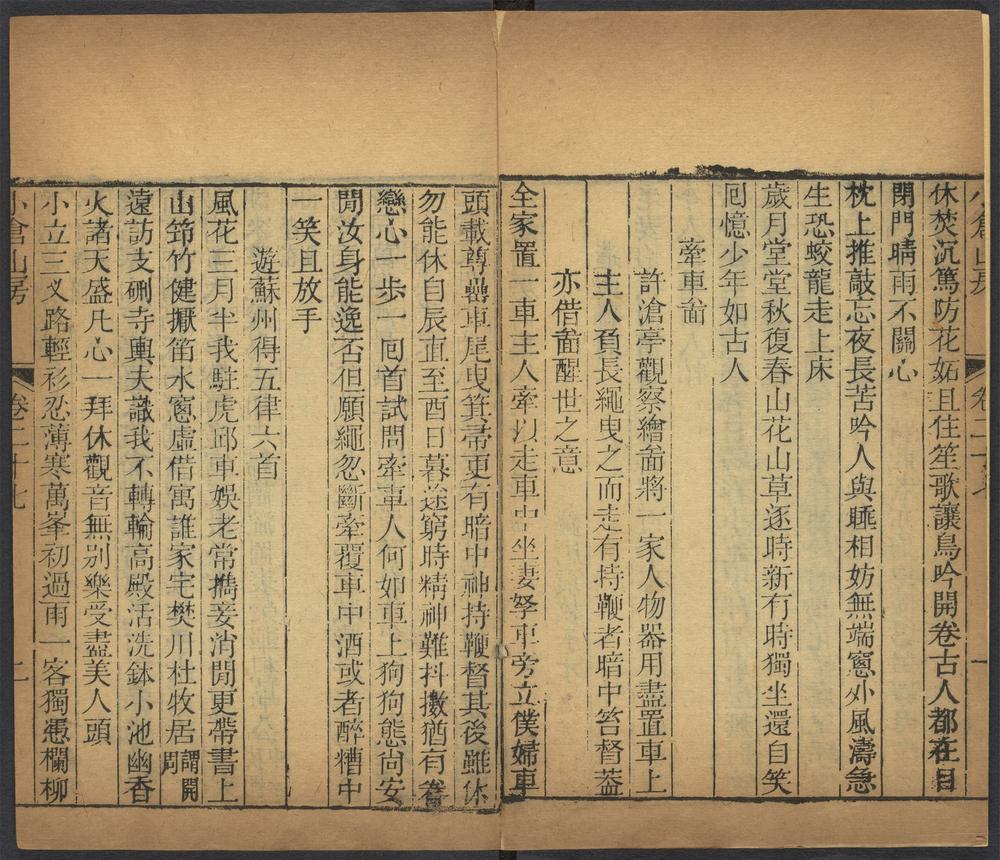 小倉山房 卷二十七 一
休焚沉篤防花妬且住笙歌讓鳥吟開卷古人都在目
閉門晴雨不關心
枕上推敲忘夜長苦吟人與睡相妨無端窗外風濤急
生恐蛟龍走上床
歲月堂堂秋復春山花山草逐時新有時獨坐還自笑
囘憶少年如古人
牽車啚
許滄亭觀察繪啚將一家人物器用盡置車上
主人負長繩曳之而走有持鞭者暗中笞督葢
亦借啚醒世之意
全家置一車主人牽以走車中坐妻孥車旁立僕婦車
頭載尊罍車尾曳箕帚更有暗中神持鞭督其後雖休
勿能休自辰直至酉日暮途窮時精神難抖擻猶有眷
戀心一步一囘首試問牽車人何如車上狗狗態尙安
閒汝身能逸否但願繩忽斷牽覆車中酒或者醉糟中
一笑且放手
遊蘇州得五律六首
風花三月半我駐虎邱車娛老常攜妾消閒更帶書上
山筇竹健擫笛水窗虛借寓誰家宅樊川杜牧居謂開周
遠訪支硎寺輿夫識我不轉輪高殿活洗鉢小池幽香
火諸天盛凡心一拜休觀音無别樂受盡美人頭
小立三叉路輕衫忍薄寒萬峯初過雨一客獨憑欄柳
小倉山房 卷二十七 二